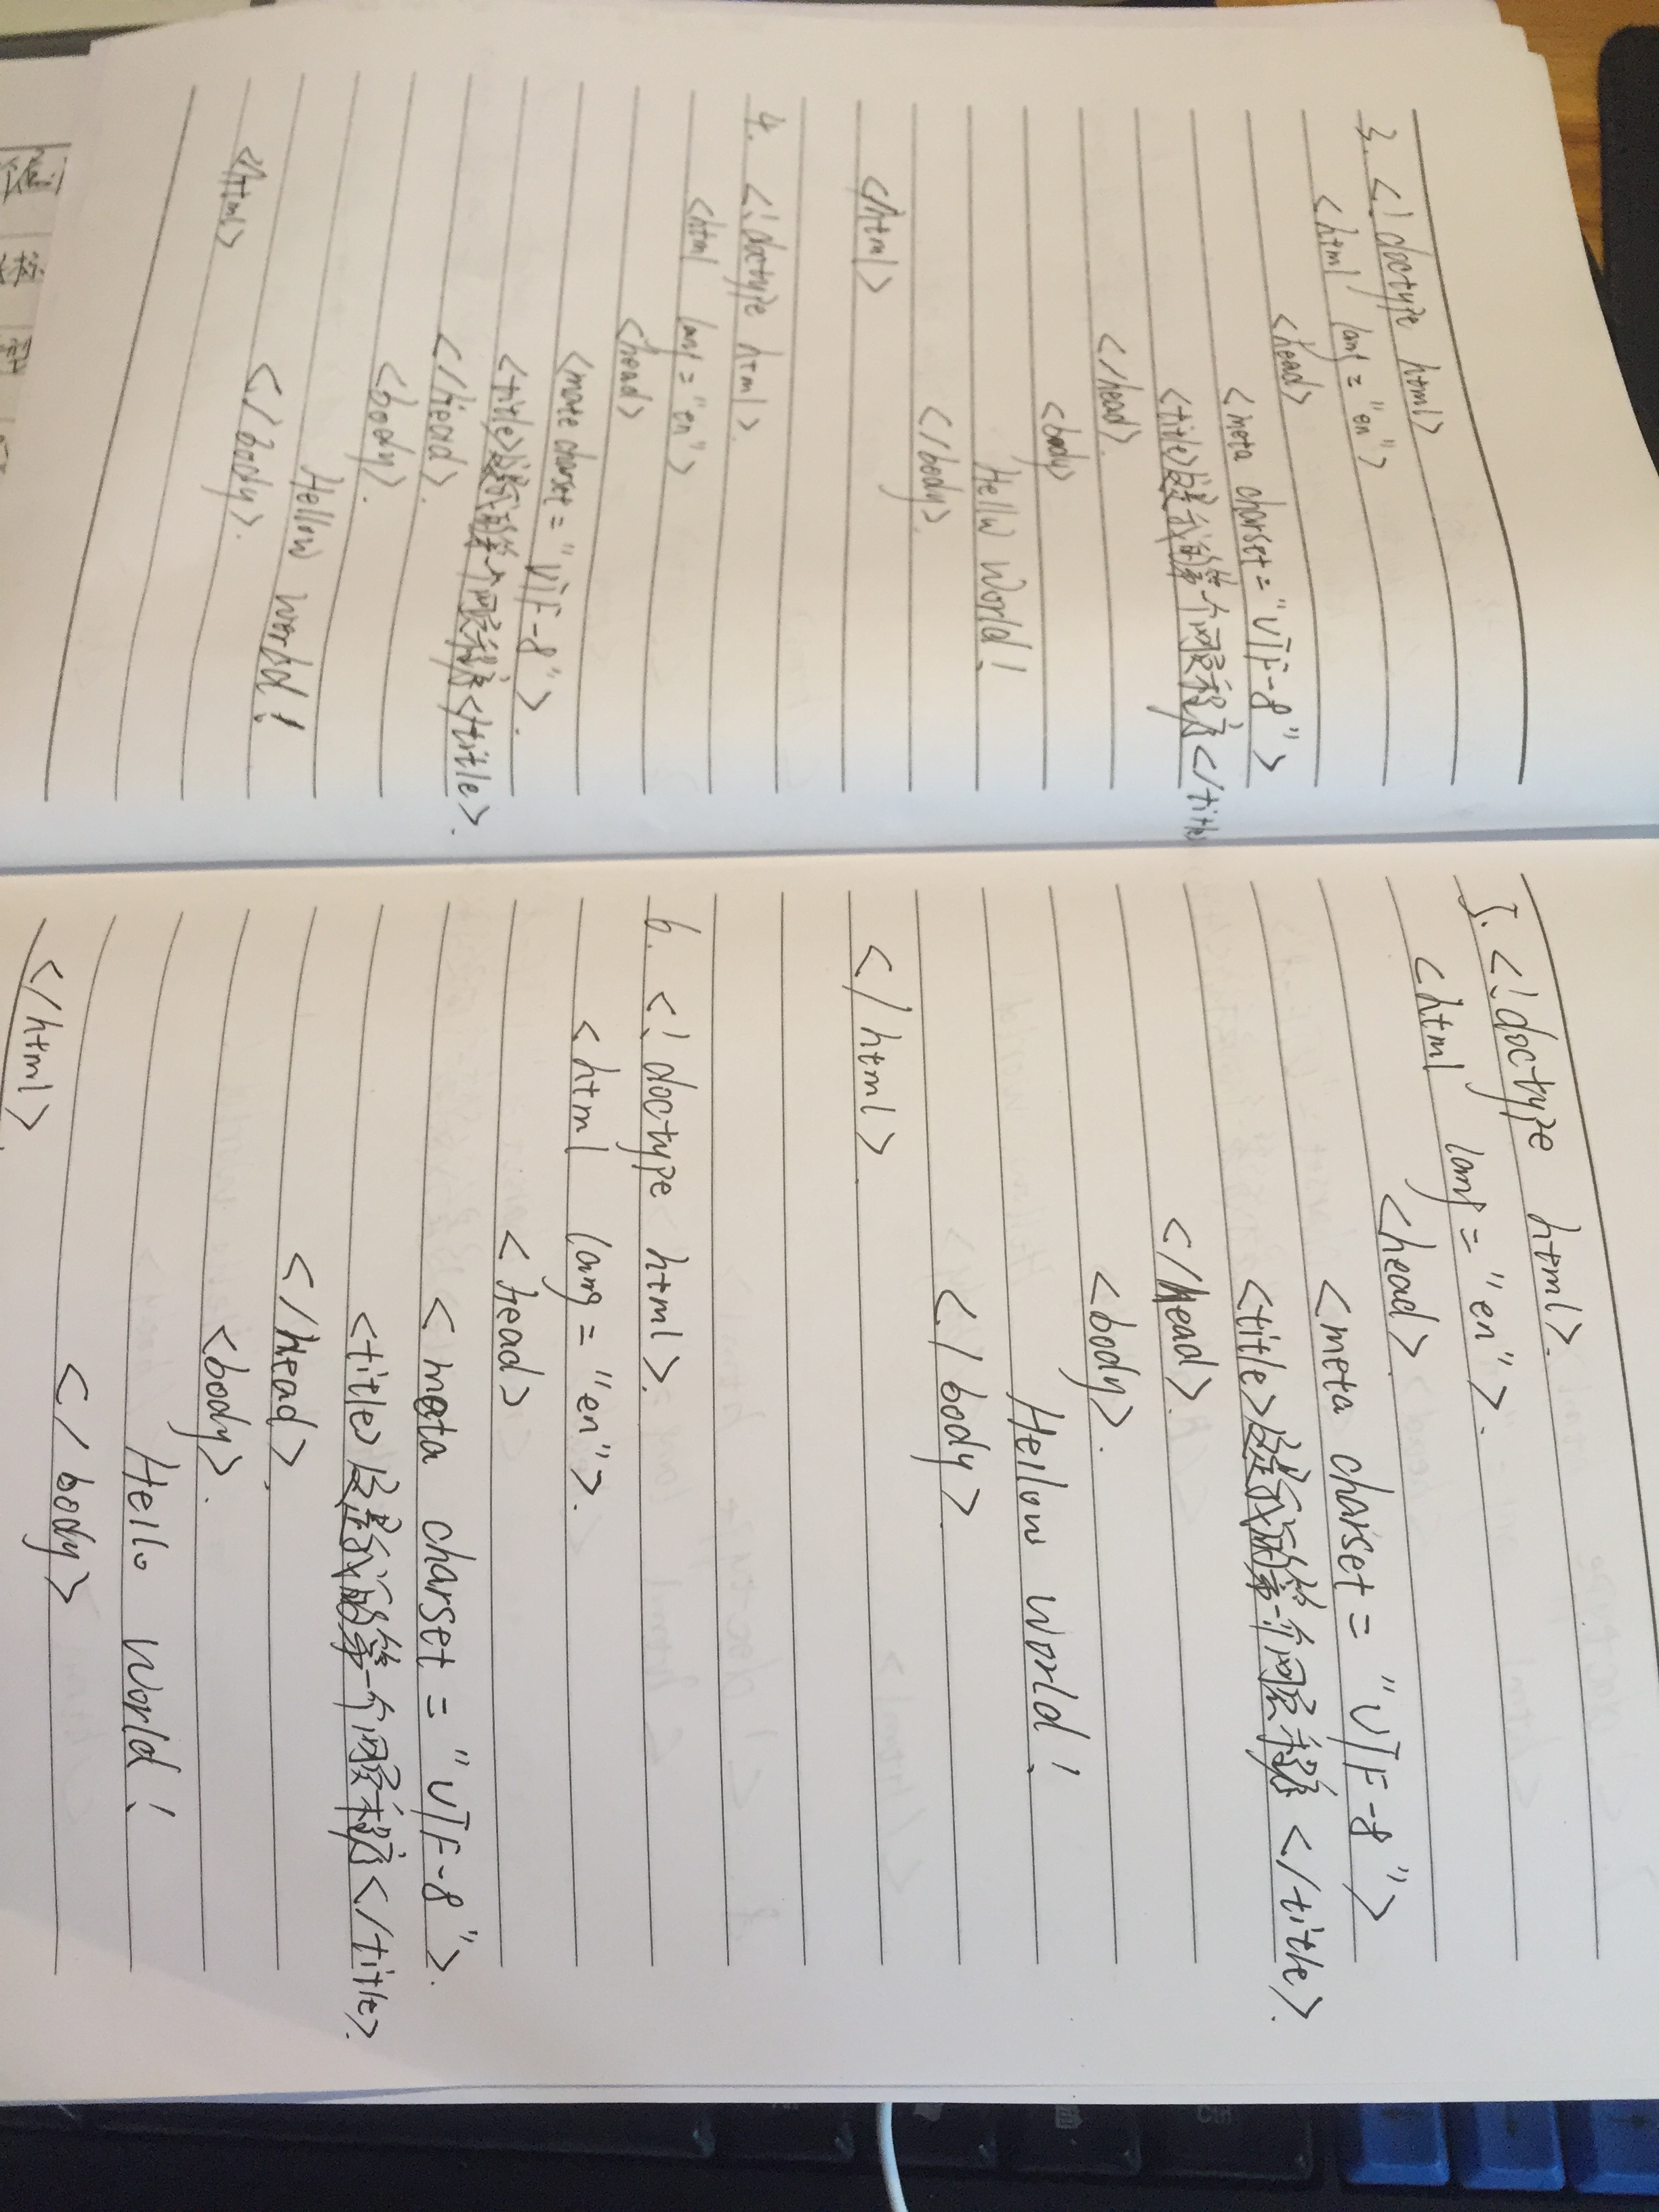 3. <!doctype html>
<html lang="en">
<head>
<meta charset="UTF-8">
<title>这是我的第一个网页程序</title
</head>.
<body>
Hellw World!
</body>.
</html>
4. <!doctype html>.
<html lang="en">
<head>
<mate charset="UTF-8">.
<title>这是我的第一个网页程序</title>.
</head>.
<body>.
Hellow world!
</body>.
</html>
5. <!doctype html>.
<html lang="en">.
<head>
<meta charset="UTF-8">
<title>这是我的第一个网页程序</title>.
</head>.
<body>.
Hellow world!
</body>.
</html>
6. <!doctype html>.
<html lang="en">.
<head>
<meta charset="UTF-8">.
<title>这是我的第一个网页程序</title>.
</head>.
<body>.
Hello world!
</body>
</html>.